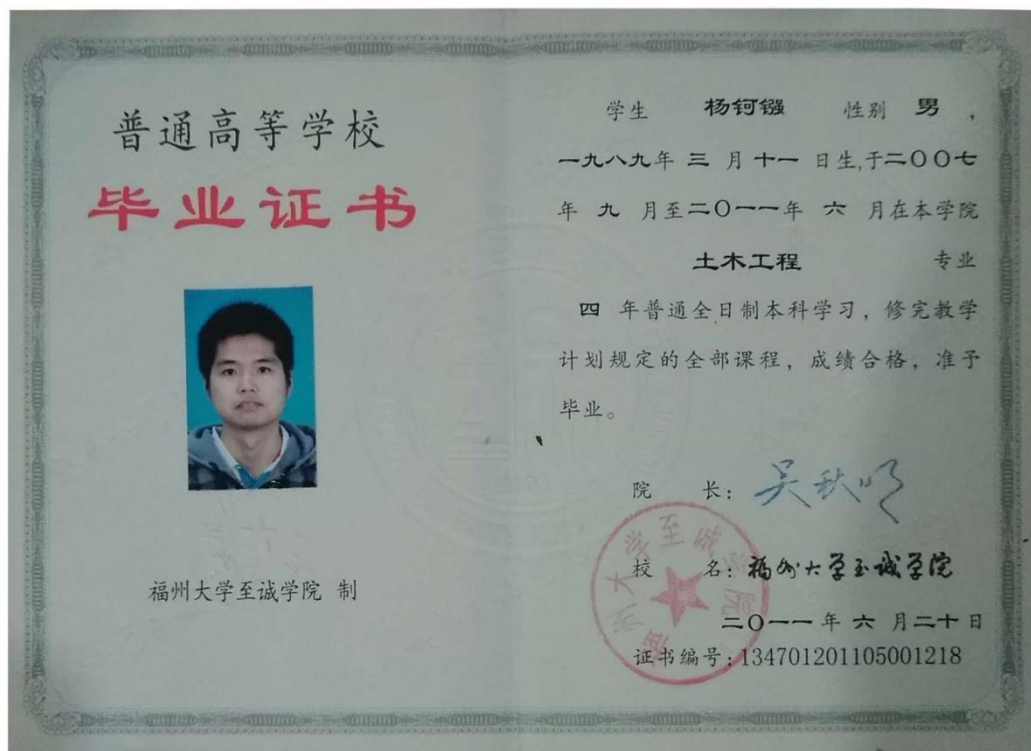 普通高等学校
毕业证书
福州大学至诚学院 制
学生 杨钶镪 性别 男，
一九八九年 三 月 十一 日生,于二〇〇七
年 九 月至二〇一一年 六 月在本学院
土木工程 专业
四 年普通全日制本科学习，修完教学
计划规定的全部课程，成绩合格，准予
毕业。
院 长：吴秋明
校 名：福州大学至诚学院
二〇一一 年 六 月二十日
证书编号：134701201105001218
福州大学至诚学院